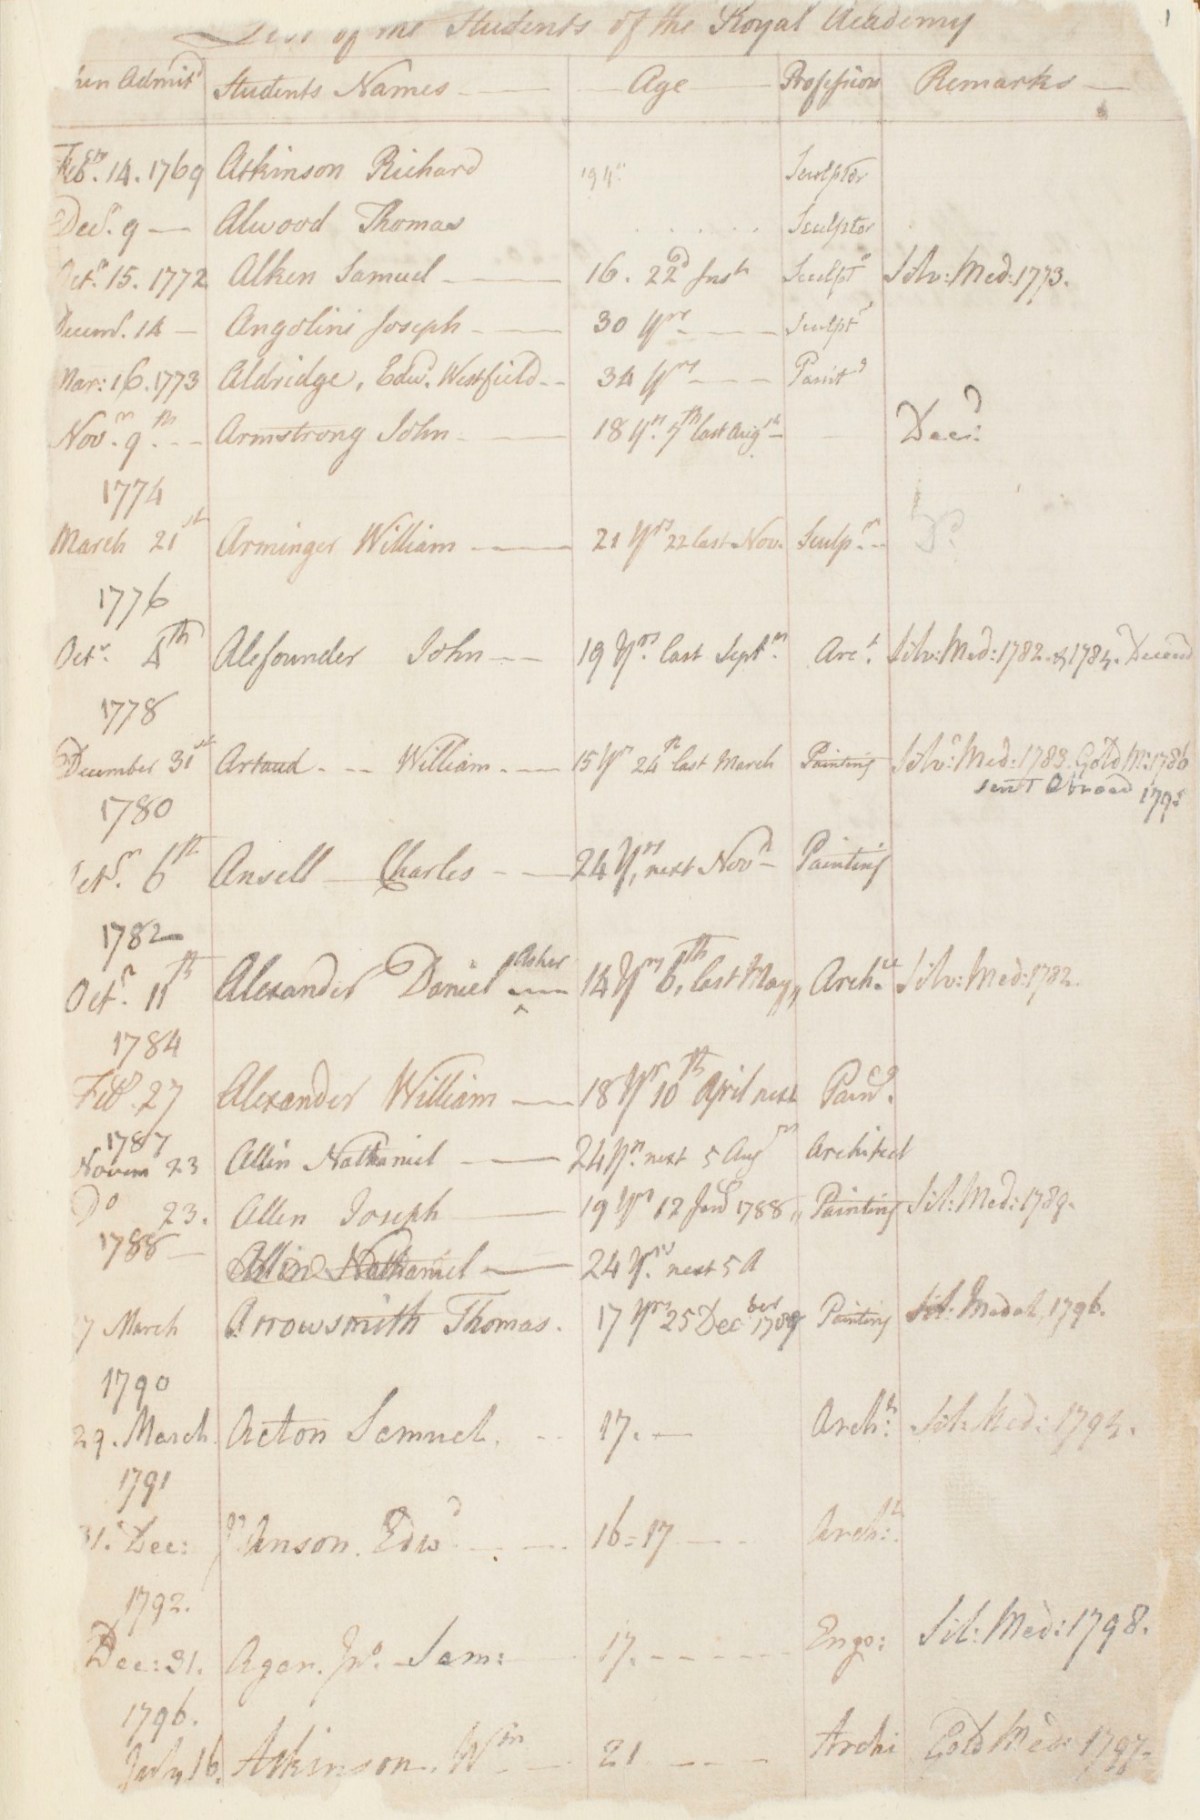 List of the Students of the Royal Academy 1
Admitd Students Names Age Profession Remarks
Feb. 14. 1769 Atkinson Richard 19 Sculptor
Decr. 9 — Alwood Thomas Sculptor
Octr. 15. 1772 Alken Samuel 16. 22d Inst Sculptr Silv: Med: 1773.
Decemr. 14 — Angolini Joseph 30 Yrs Sculptr
Mar: 16. 1773 Aldridge, Edwd. Westfield 34 Yrs Paintg
Novr. 9th Armstrong John 18 Yrs. 7th last Augst Decd
1774
March 21st Arminger William 21 Yrs 22 last Nov. Sculpr Do
1776
Octr. 4th Alefounder John 19 Yrs. last Septr. Arct. Silv: Med: 1782. & 1784. Decead
1778
December 31st Artaud William 15 Yrs 24th last March Painting Silvr Med: 1783. Gold M: 1786
sent Abroad 1795
1780
Octr. 6th Ansell Charles 24 Yrs, next Novr Painting
1782
Octr. 11th Alexander Daniel ^ Asher 14 Yrs 6th, last May, Archct. Silv: Med: 1782.
1784
Feb 27 Alexander William 18 Yrs 10th April next Paing.
1787
Novem 23 Allin Nathaniel 24 Yrs. next 5 Aug Architect
Do 23. Allen Joseph 19 Yrs 12 Jany 1788, Painting Sil: Med: 1789.
1788
Allin Nathaniel 24 Yrs. next 5 A
7 March Arrowsmith Thomas. 17 Yrs 25 Decber 1789 Painting Sil. Medal, 1796.
1790
29. March Acton Samuel. 17. — Archt: Sil: Med: 1794.
1791
31. Dec: I'Anson. Edwd 16=17 Archt:
1792.
Dec: 31. Agar. Jno. Sam: 17. Engr: Sil: Med: 1798.
1796.
July 16. Atkinson. Wm 21 Archi Gold Med: 1797.